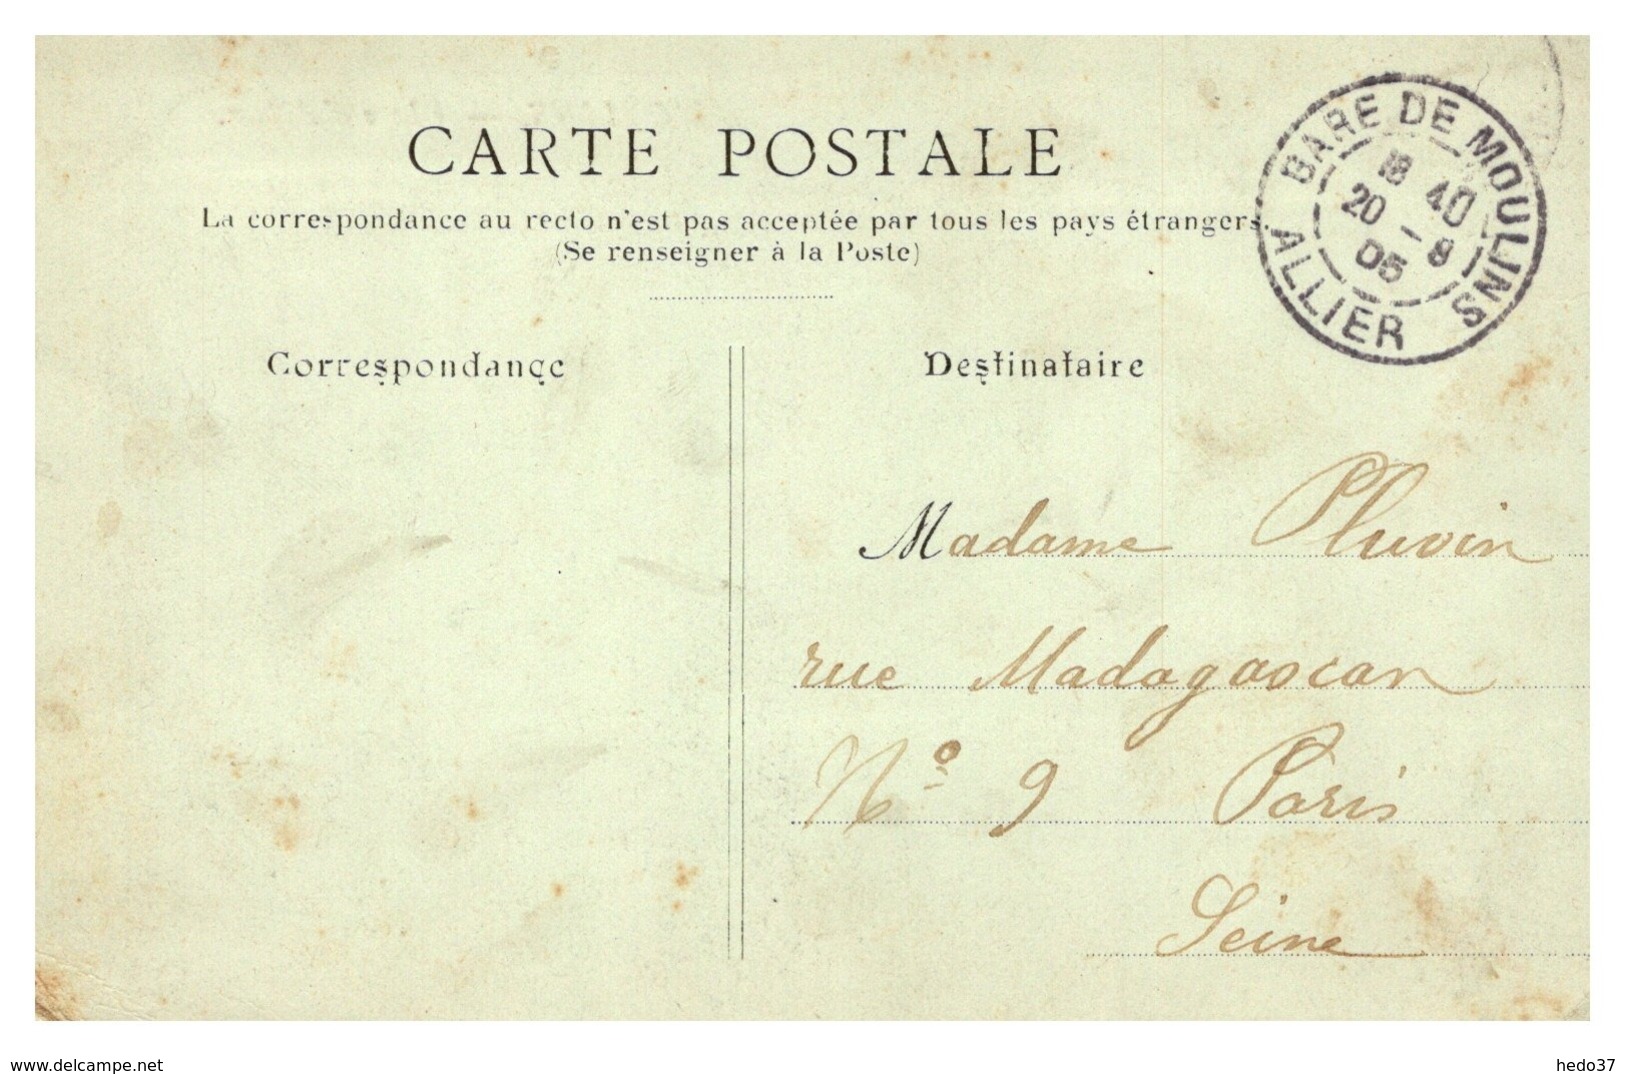 CARTE POSTALE
La correspondance au recto n'est pas acceptée par tous les pays étrangers.
(Se renseigner à la Poste)
BARE DE MOULINS
40
20 - 8
05
ALLIER
Correspondance
Destinataire
Madame Pluvin
rue Madagascar
Nº 9 Paris
Seine
www.delcampe.net
hedo37